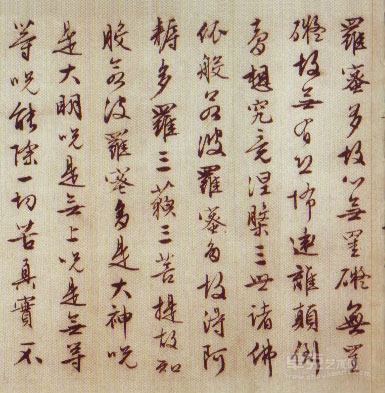 羅蜜多故心無罣礙無罣
礙故無有恐怖遠離顛倒
夢想究竟涅槃三世諸佛
依般若波羅蜜多故得阿
耨多羅三藐三菩提故知
般若波羅蜜多是大神呪
是大明呪是無上呪是無等
等呪能除一切苦真實不